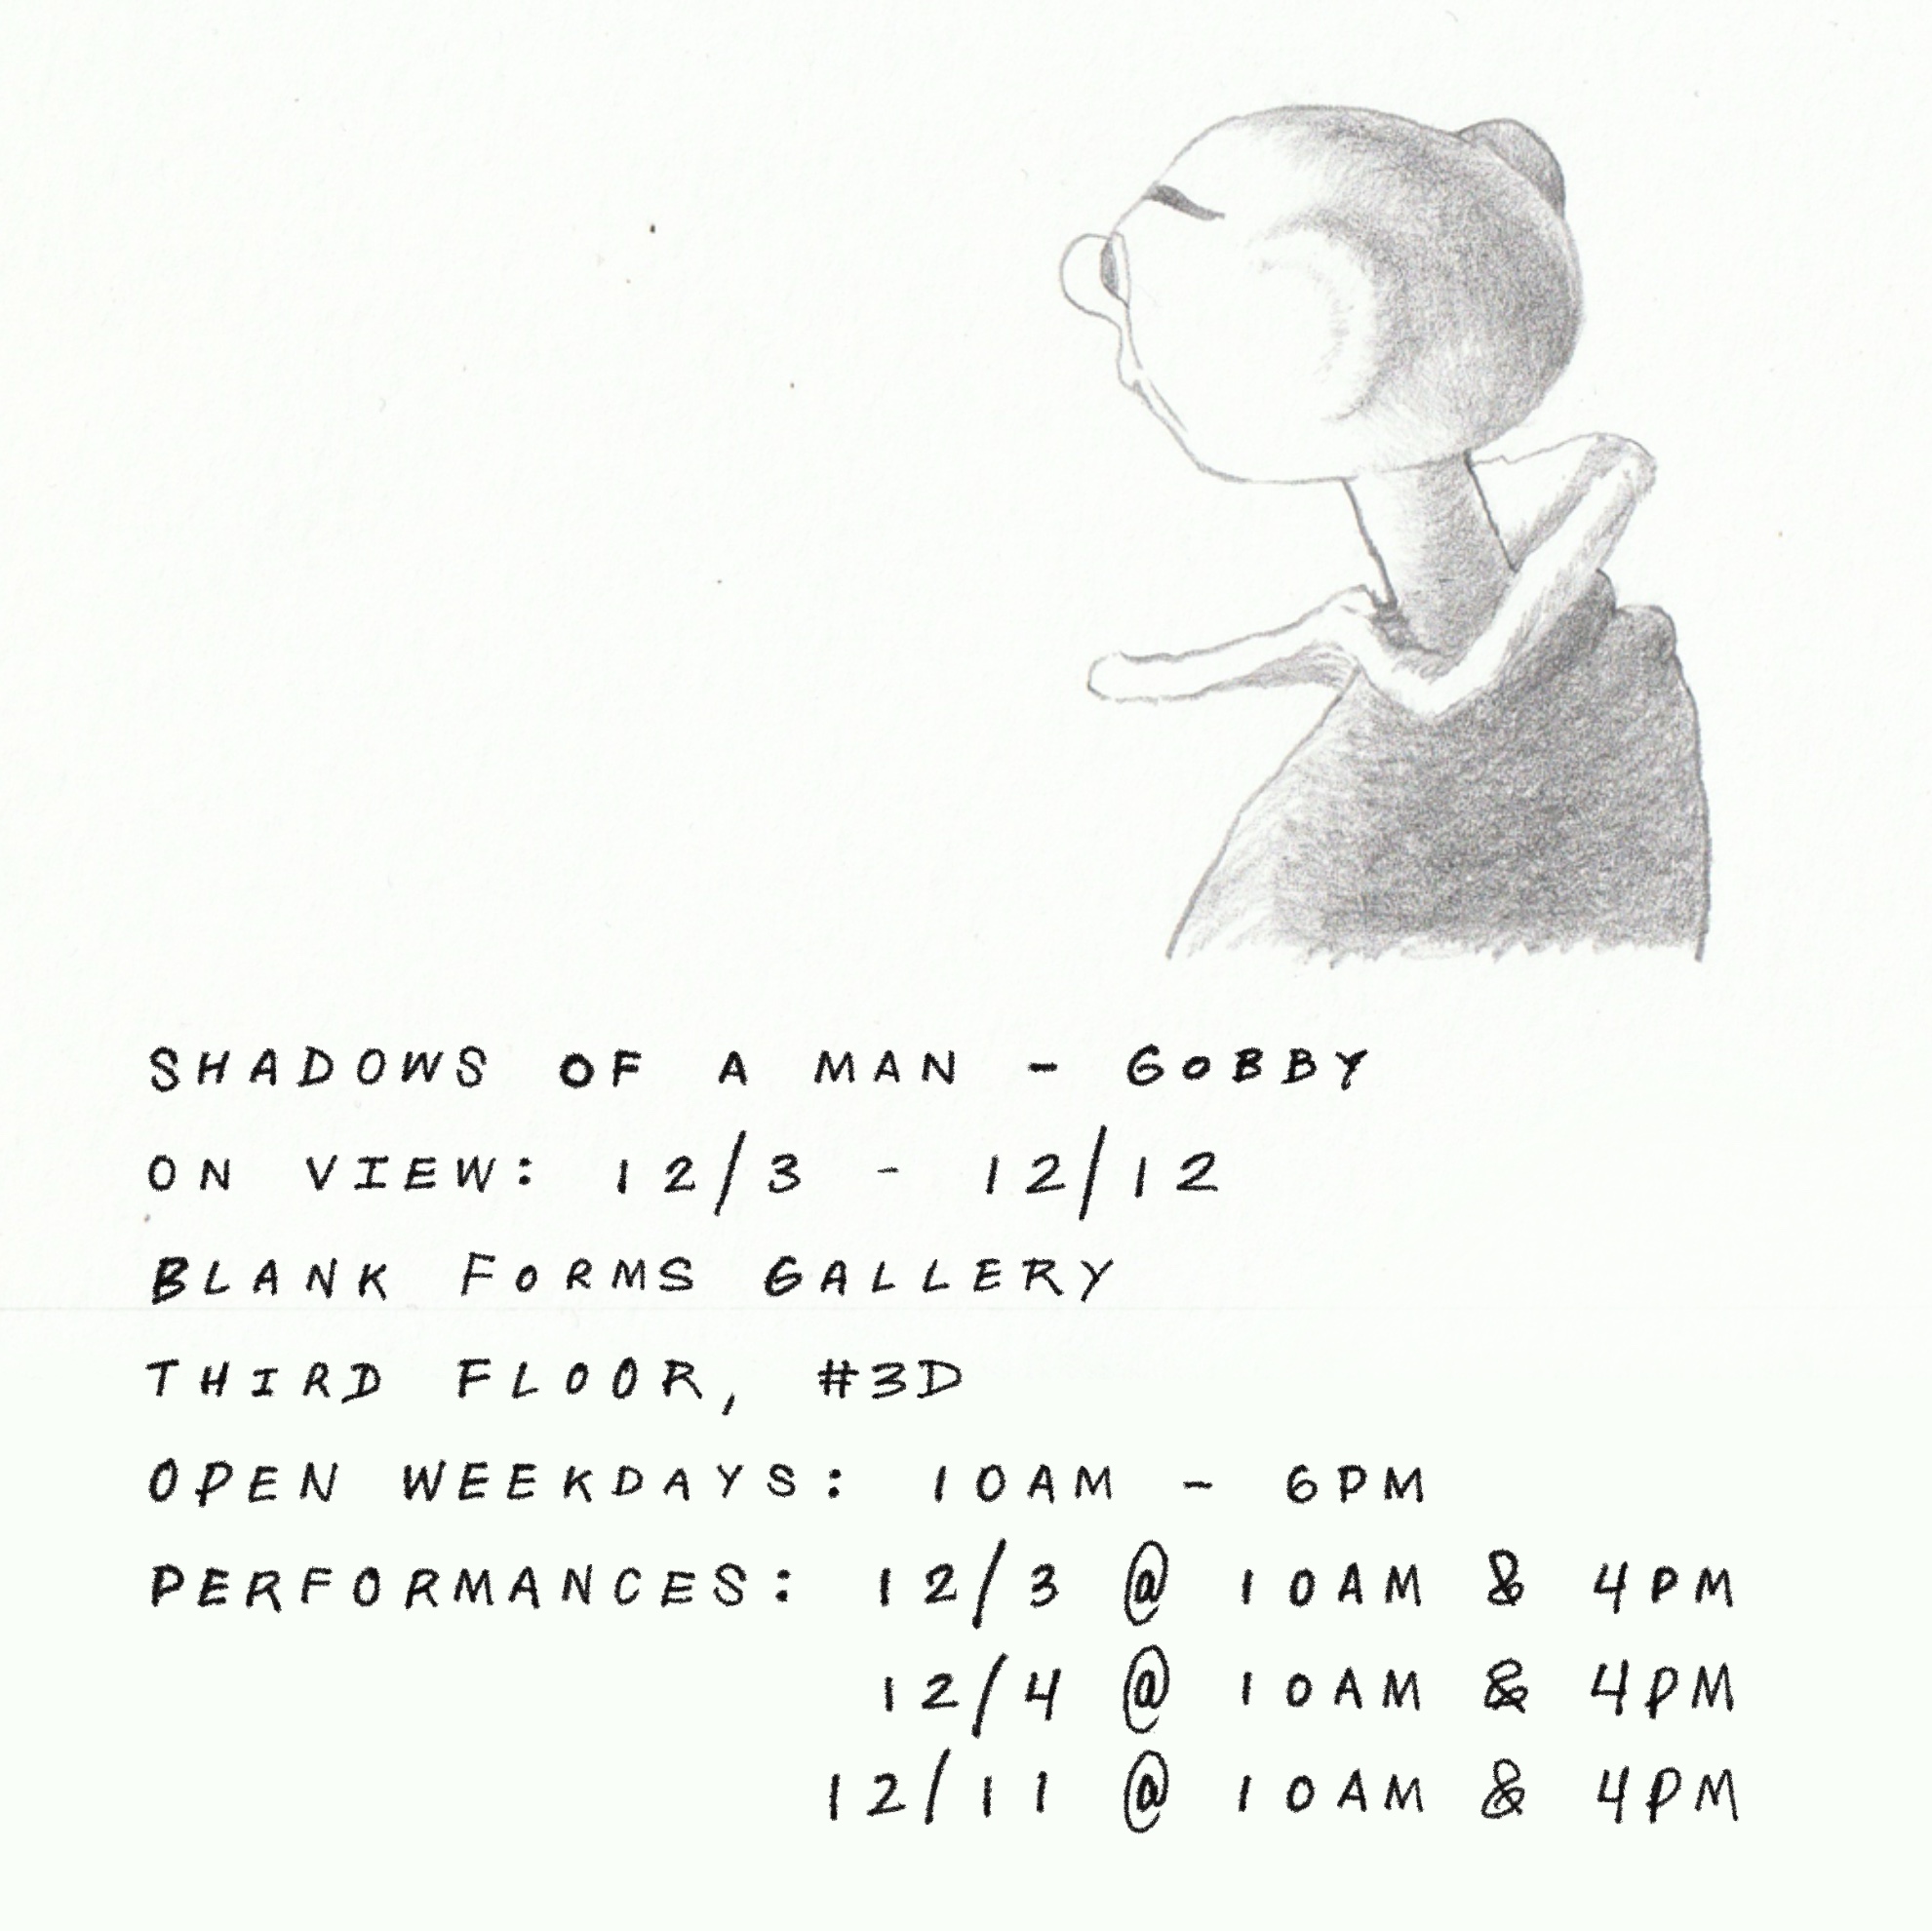 SHADOWS OF A MAN - GOBBY
ON VIEW: 12/3 - 12/12
BLANK FORMS GALLERY
THIRD FLOOR, #3D
OPEN WEEKDAYS: 10AM - 6PM
PERFORMANCES: 12/3 @ 10AM & 4PM
12/4 @ 10AM & 4PM
12/11 @ 10AM & 4PM